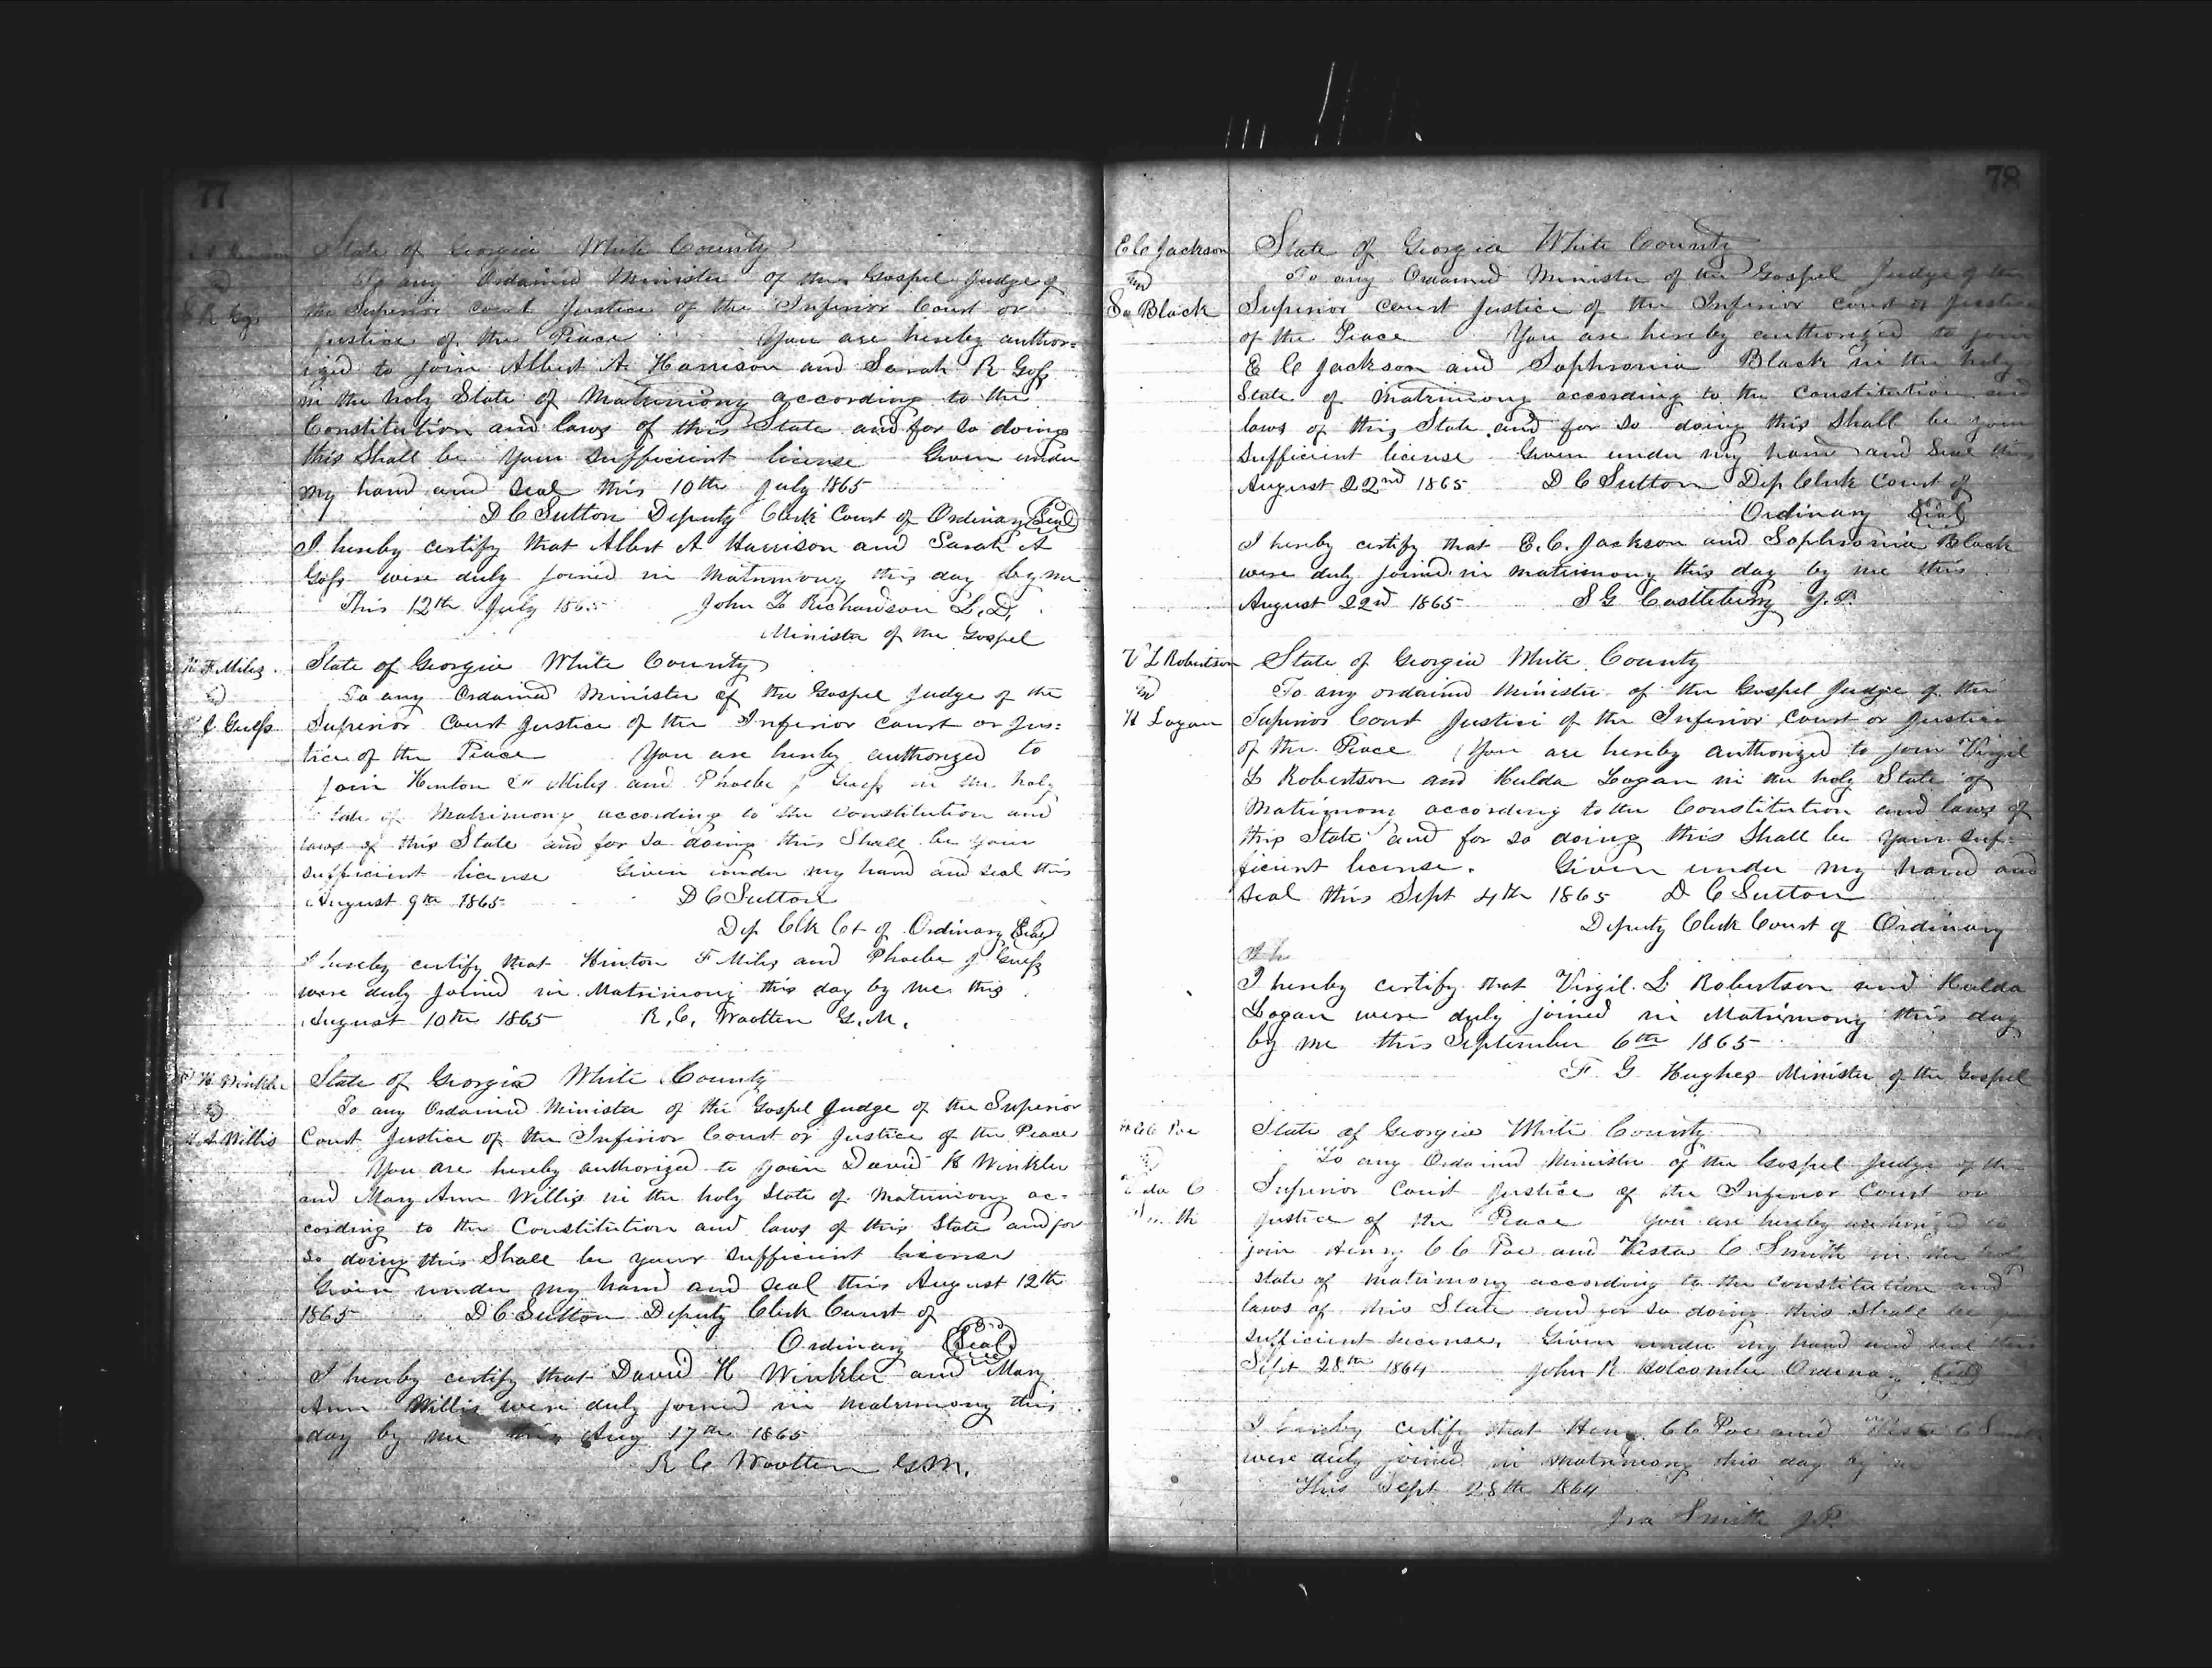 77
State of Georgia White County
To any Ordained Minister of the Gospel Judge of
the Superior court Justice of the Inferior Court or
Justice of the Peace You are hereby author=
ized to join Albert A. Harrison and Sarah R Goss
in the holy State of Matrimony according to the
Constitution and laws of this State and for so doing
this Shall be Your Sufficient license Given under
my hand and seal this 10th July 1865
D C Sutton Deputy Clerk Court of Ordinary Seal
I hereby certify that Albert A Harrison and Sarah A
Goss were duly joined in Matrimony this day by me
This 12th July 1865 John L Richardson L. D.
Minister of the Gospel
H F Miles
and
P J Guess
State of Georgia White County
To any Ordained Minister of the Gospel Judge of the
Superior Court Justice of the Inferior Court or Jus=
tice of the Peace You are hereby authorized to
join Hinton F Miles and Phoebe J Guess in the holy
State of Matrimony according to the Constitution and
laws of this State and for so doing this Shall be your
sufficient license Given under my hand and seal this
August 9th 1865 D C Sutton
Dep Clk Ct of Ordinary Seal
I hereby certify that Hinton F Miles and Phoebe J Guess
were duly joined in Matrimony this day by me this
August 10th 1865 R. C. Wootten G. M.
D H Winkler
and
M A Willis
State of Georgia White County
To any Ordained Minister of the Gospel Judge of the Superior
Court Justice of the Inferior Court or Justice of the Peace
You are hereby authorized to join David H Winkler
and Mary Ann Willis in the holy State of Matrimony ac=
cording to the Constitution and laws of this State and for
so doing this Shall be your sufficient license
Given under my hand and seal this August 12th
1865 D C Sutton Deputy Clerk Court of
Ordinary Seal
I hereby certify that David H Winkler and Mary
Ann Willis were duly joined in matrimony this
day by me this Aug 17th 1865
R C Wootten G M.
78
E C Jackson
and
So Black
State of Georgia White County
To any Ordained Minister of the Gospel Judge of the
Superior court Justice of the Inferior court or Justice
of the Peace You are hereby authorized to join
E C Jackson and Sophronia Black in the holy
State of Matrimony according to the Constitution and
laws of this State and for so doing this Shall be your
Sufficient license Given under my hand and Seal this
August 22nd 1865 D C Sutton Dep Clerk Court of
Ordinary Seal
I hereby certify that E. C. Jackson and Sophronia Black
were duly joined in matrimony this day by me this
August 22nd 1865 S G Castleberry J. P.
V L Robertson
and
H Logan
State of Georgia White County
To any ordained Minister of the Gospel Judge of the
Superior Court Justice of the Inferior Court or Justice
of the Peace You are hereby authorized to join Virgil
L Robertson and Hulda Logan in the holy State of
Matrimony according to the Constitution and laws of
this State and for so doing this Shall be Your suf=
ficient license. Given under my hand and
seal this Sept 4th 1865 D C Sutton
Deputy Clerk Court of Ordinary
I hereby certify that Virgil L Robertson and Hulda
Logan were duly joined in Matrimony this day
by me this September 6th 1865
F. G Hughes Minister of the Gospel
H C C Poe
and
C
Smith
State of Georgia White County
To any Ordained Minister of the Gospel Judge of the
Superior Court Justice of the Inferior Court or
Justice of the Peace You are hereby authorized to
join Henry C C Poe and Vesta C Smith in the holy
state of matrimony according to the constitution and
laws of this State and for so doing this Shall be
sufficient license. Given under my hand and seal this
Sept 28th 1864 John R Holcombe Ordinary Seal
I hereby certify that Henry C C Poe and Vesta C
were duly joined in matrimony this day by me
This Sept 28th 1864
Ira Smith J. P.